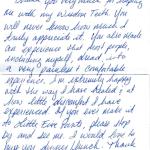 Thank you very much for helping
me with my Wisdom Teeth. You
will never know how please I
truely appreciate it. You also made
an experience that most people,
including myself, dread into
a very painless & comfortable
experience. I'm extremely happy
with the way I have healed & at
how little discomfort I have
experienced. If you ever make it
to Olive Tree Rests, please stop
by and see me. I would love to
buy you dinner / lunch. Thank